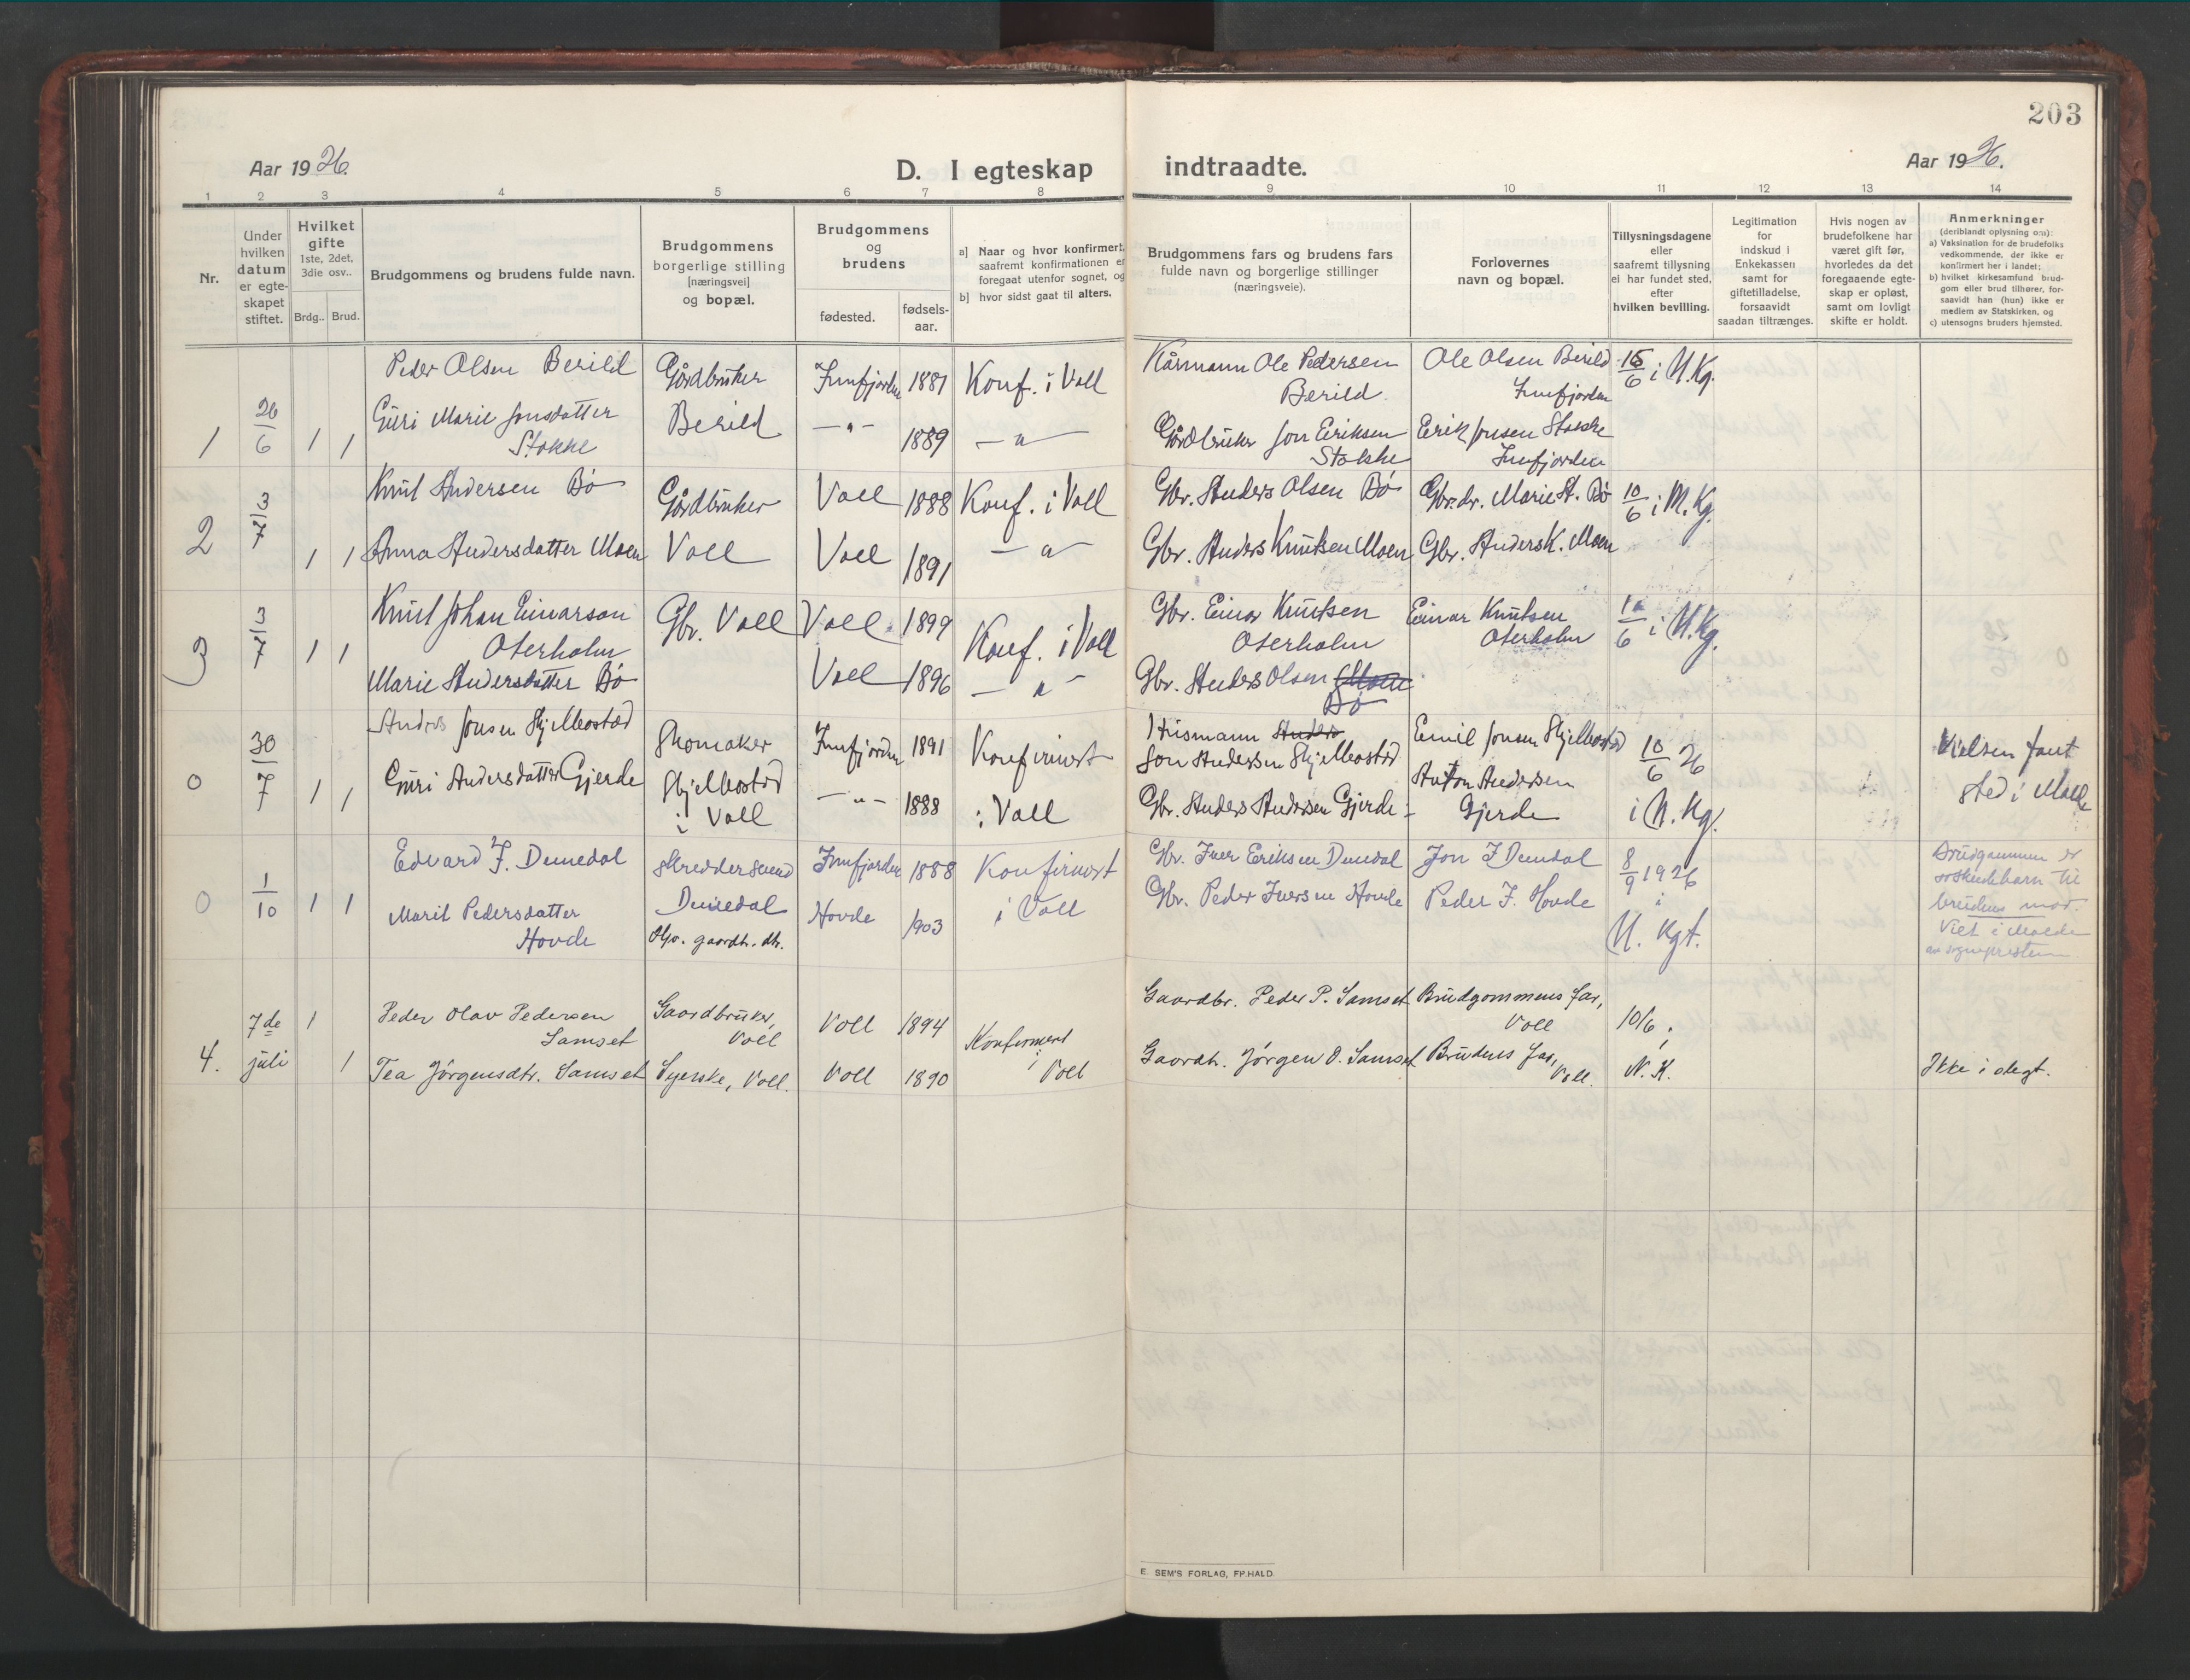 203
Aar 1926.
D. I egteskap indtraadte.
Aar 1926.
1 2 3 4 5 6 7 8 9 10 11 12 13 14
Nr.
Under
hvilken
datum
er egte-
skapet
stiftet.
Hvilket
gifte
1ste, 2det,
3die osv..
Brdg.. Brud.
Brudgommens og brudens fulde navn.
Brudgommens
borgerlige stilling
[næringsvei]
og bopæl.
Brudgommens
og
brudens
fødested.
fødsels-
aar.
a] Naar og hvor konfirmert,
saafremt konfirmationen er
foregaat utenfor sognet, og
b] hvor sidst gaat til alters.
Brudgommens fars og brudens fars
fulde navn og borgerlige stillinger
(næringsveie).
Forlovernes
navn og bopæl.
Tillysningsdagene
eller
saafremt tillysning
ei har fundet sted,
efter
hvilken bevilling.
Legitimation
for
indskud i
Enkekassen
samt for
giftetilladelse,
forsaavidt
saadan tiltrænges.
Hvis nogen av
brudefolkene har
været gift før,
hvorledes da det
foregaaende egte-
skap er opløst,
samt om lovligt
skifte er holdt.
Anmerkninger
(deriblandt oplysning om):
a) Vaksination for de brudefolks
vedkommende, der ikke er
konfirmert her i landet;
b) hvilket kirkesamfund brud-
gom eller brud tilhører, for-
saavidt han (hun) ikke er
medlem av Statskirken, og
c) utensogns bruders hjemsted.
Peder Olsen Berild Gårdbruker Innfjorden 1881 Konf. i Voll Kårmann Ole Pedersen Ole Olsen Berild 15/6 i N.Kg.
Berild Innfjorden
1 26/6 1 1 Guri Marie Jonsdatter Berild —"— 1889 —"— Gårdbruker Jon Eriksen Erik Jonsen Stokke
Stokke Stokke Innfjorden
2 3/7 Knut Andersen Bø Gårdbruker Voll 1888 Konf. i Voll Gbr. Anders Olsen Bø Gbr. dr. Marie A. Bø 10/6 i N.Kg.
1 1 Anna Andersdatter Moen Voll Voll 1891 —"— Gbr. Anders Knutsen Moen Gbr. Anders K. Moen
3 3/7 1 1 Knut Johan Einarson Gbr. Voll Voll 1899 Konf. i Voll Gbr. Einar Knutsen Einar Knutsen 10/6 i N.Kg.
Oterholm Oterholm Oterholm
Marie Andersdatter Bø Voll 1896 —"— Gbr. Anders Olsen Moen
Bø
0 30/7 1 1 Anders Jonsen Skjelbostad Skomaker Innfjorden 1891 Konfirmert Husmann Anders Emil Jonsen Skjelbostad 10/6 26
Jon Andersen Skjelbostad
Guri Andersdatter Gjerde Skjelbostad —"— 1888 i Voll Gbr. Anders Andersen Gjerde Anton Andersen i N.Kg.
i Voll Gjerde
Vielsen fant
sted i Molde
0 1/10 1 1 Edvard I. Dunedal Skreddersvend Innfjorden 1888 Konfirmert Gbr. Iver Eriksen Dunedal Jon I Dunedal 8/9 1926
Marit Pedersdatter Dunedal Hovde 1903 i Voll Gbr. Peder Iversen Hovde Peder I. Hovde i
Hovde Hjv. gaardb. dtr. N. Kgt.
Brudgommen er
søskendebarn til
brudens mor.
Viet i Molde
av sognepresten
4. 7de juli 1 Peder Olav Pedersen Gaardbruker, Voll 1894 Konfirmert Gaardbr. Peder P. Samset Brudgommens far, 10/6 i
Samset Voll Voll
1 Tea Jørgensdtr. Samset Syerske, Voll. Voll 1890 i Voll Gaardb. Jørgen O. Samset Brudens far, N.K.
Voll.
Ikke i slegt.
E. SEM'S FORLAG, FR.HALD